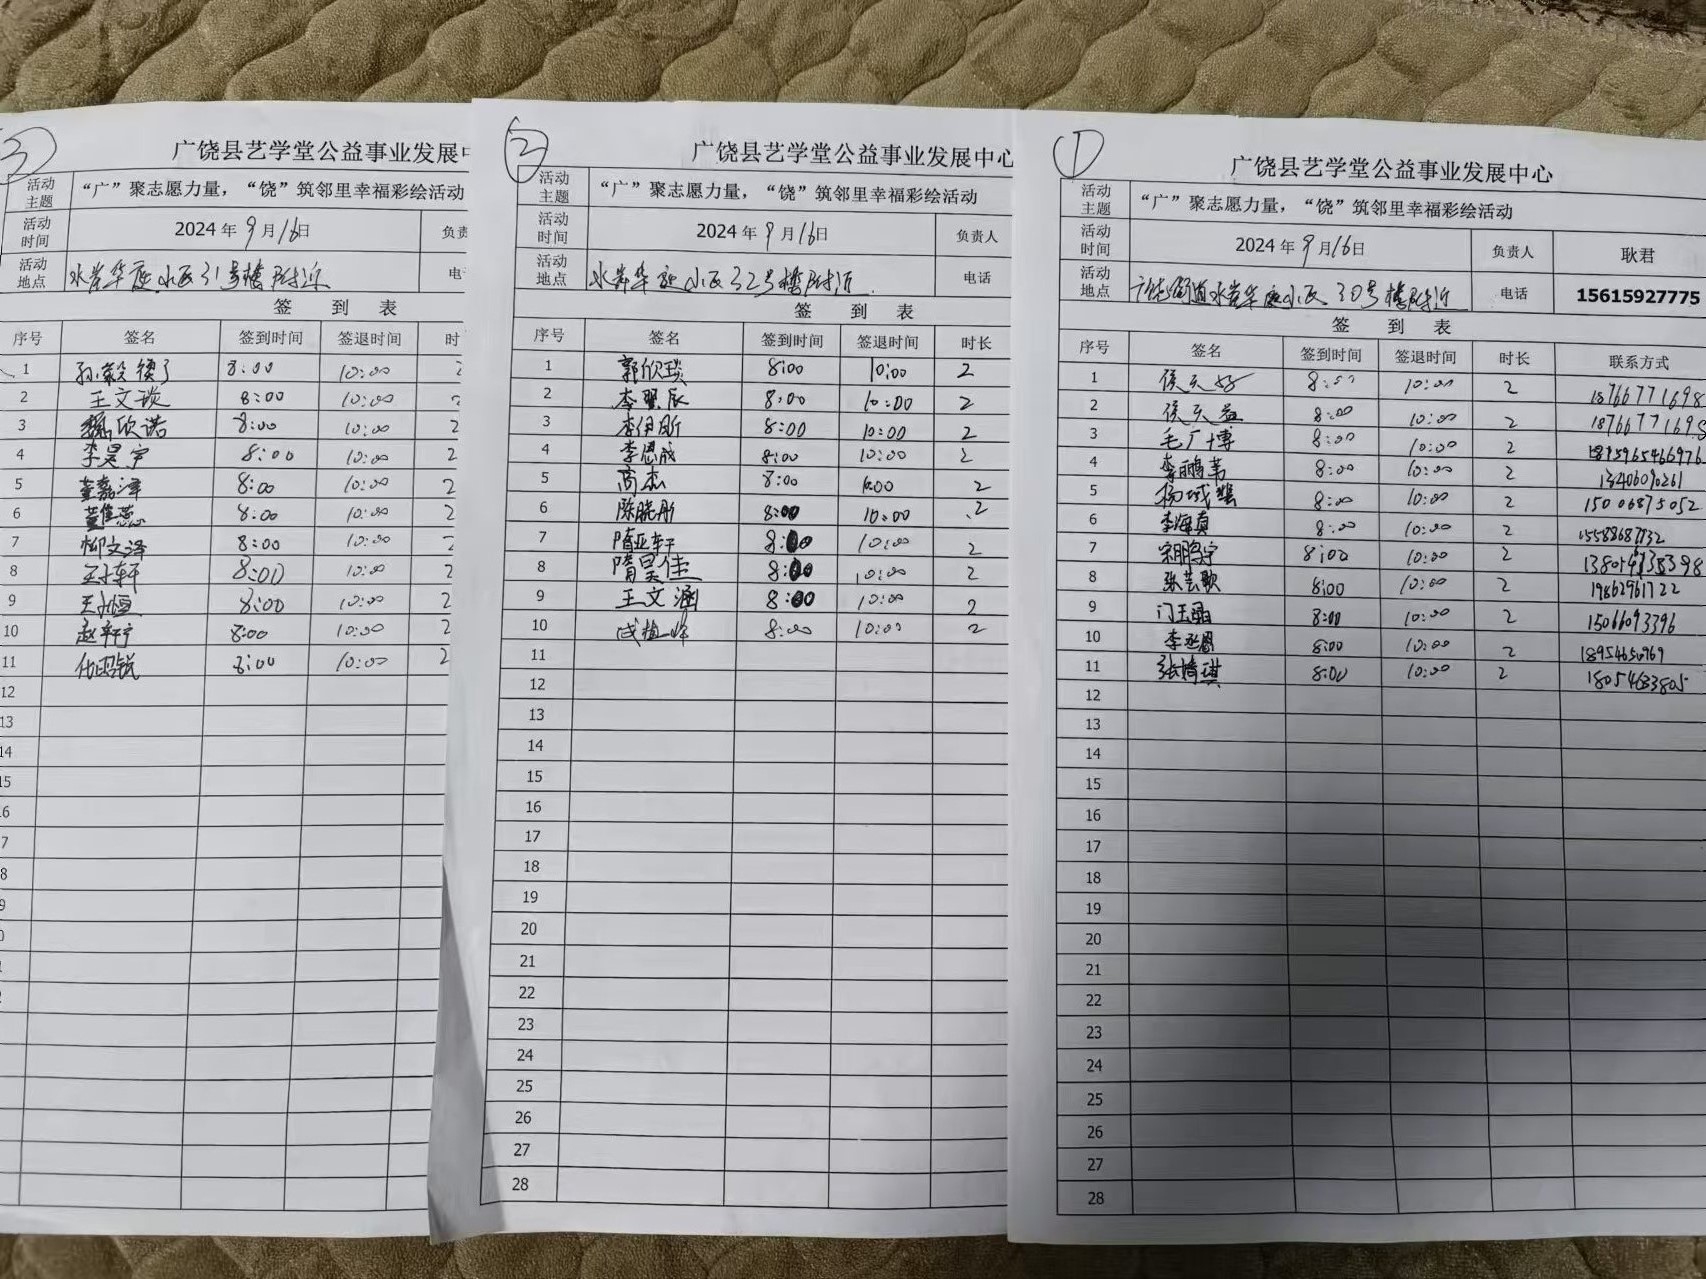 ③
广饶县艺学堂公益事业发展中
活动主题 “广”聚志愿力量，“饶”筑邻里幸福彩绘活动
活动时间 2024年9月16日 负责
活动地点 水岸华庭小区31号楼附近 电
签 到 表
序号 签名 签到时间 签退时间 时
1 8:00 10:00 2
2 王文琰 8:00 10:00 2
3 魏欣诺 8:00 10:00 2
4 李昊宇 8:00 10:00 2
5 董嘉津 8:00 10:00 2
6 董佳蕊 8:00 10:00 2
7 柳文泽 8:00 10:00 2
8 王子轩 8:00 10:00 2
9 王子恒 8:00 10:00 2
10 赵轩宇 8:00 10:00 2
11 8:00 10:00 2
12
13
14
15
②
广饶县艺学堂公益事业发展中心
活动主题 “广”聚志愿力量，“饶”筑邻里幸福彩绘活动
活动时间 2024年9月16日 负责人
活动地点 水岸华庭小区32号楼附近 电话
签 到 表
序号 签名 签到时间 签退时间 时长
1 郭欣琰 8:00 10:00 2
2 李翌辰 8:00 10:00 2
3 李伊昕 8:00 10:00 2
4 李恩成 8:00 10:00 2
5 高杰 8:00 10:00 2
6 陈晓彤 8:00 10:00 2
7 隋亚轩 8:00 10:00 2
8 隋昊佳 8:00 10:00 2
9 王文涵 8:00 10:00 2
10 8:00 10:00 2
11
12
13
14
15
16
17
18
19
20
21
22
23
24
25
26
27
28
①
广饶县艺学堂公益事业发展中心
活动主题 “广”聚志愿力量，“饶”筑邻里幸福彩绘活动
活动时间 2024年9月16日 负责人 耿君
活动地点 广饶街道水岸华庭小区30号楼附近 电话 15615927775
签 到 表
序号 签名 签到时间 签退时间 时长 联系方式
1 侯天好 8:00 10:00 2 18766771698
2 侯天益 8:00 10:00 2 18766771698
3 毛广博 8:00 10:00 2
4 李鹏苇 8:00 10:00 2 13406090261
5 8:00 10:00 2 15006875052
6 李海真 8:00 10:00 2 15588687732
7 宋鹏宇 8:00 10:00 2
8 张芸歌 8:00 10:00 2 19862961722
9 门玉涵 8:00 10:00 2 15066093396
10 李丞恩 8:00 10:00 2 18954650969
11 张椅琪 8:00 10:00 2 18054633805
12
13
14
15
16
17
18
19
20
21
22
23
24
25
26
27
28